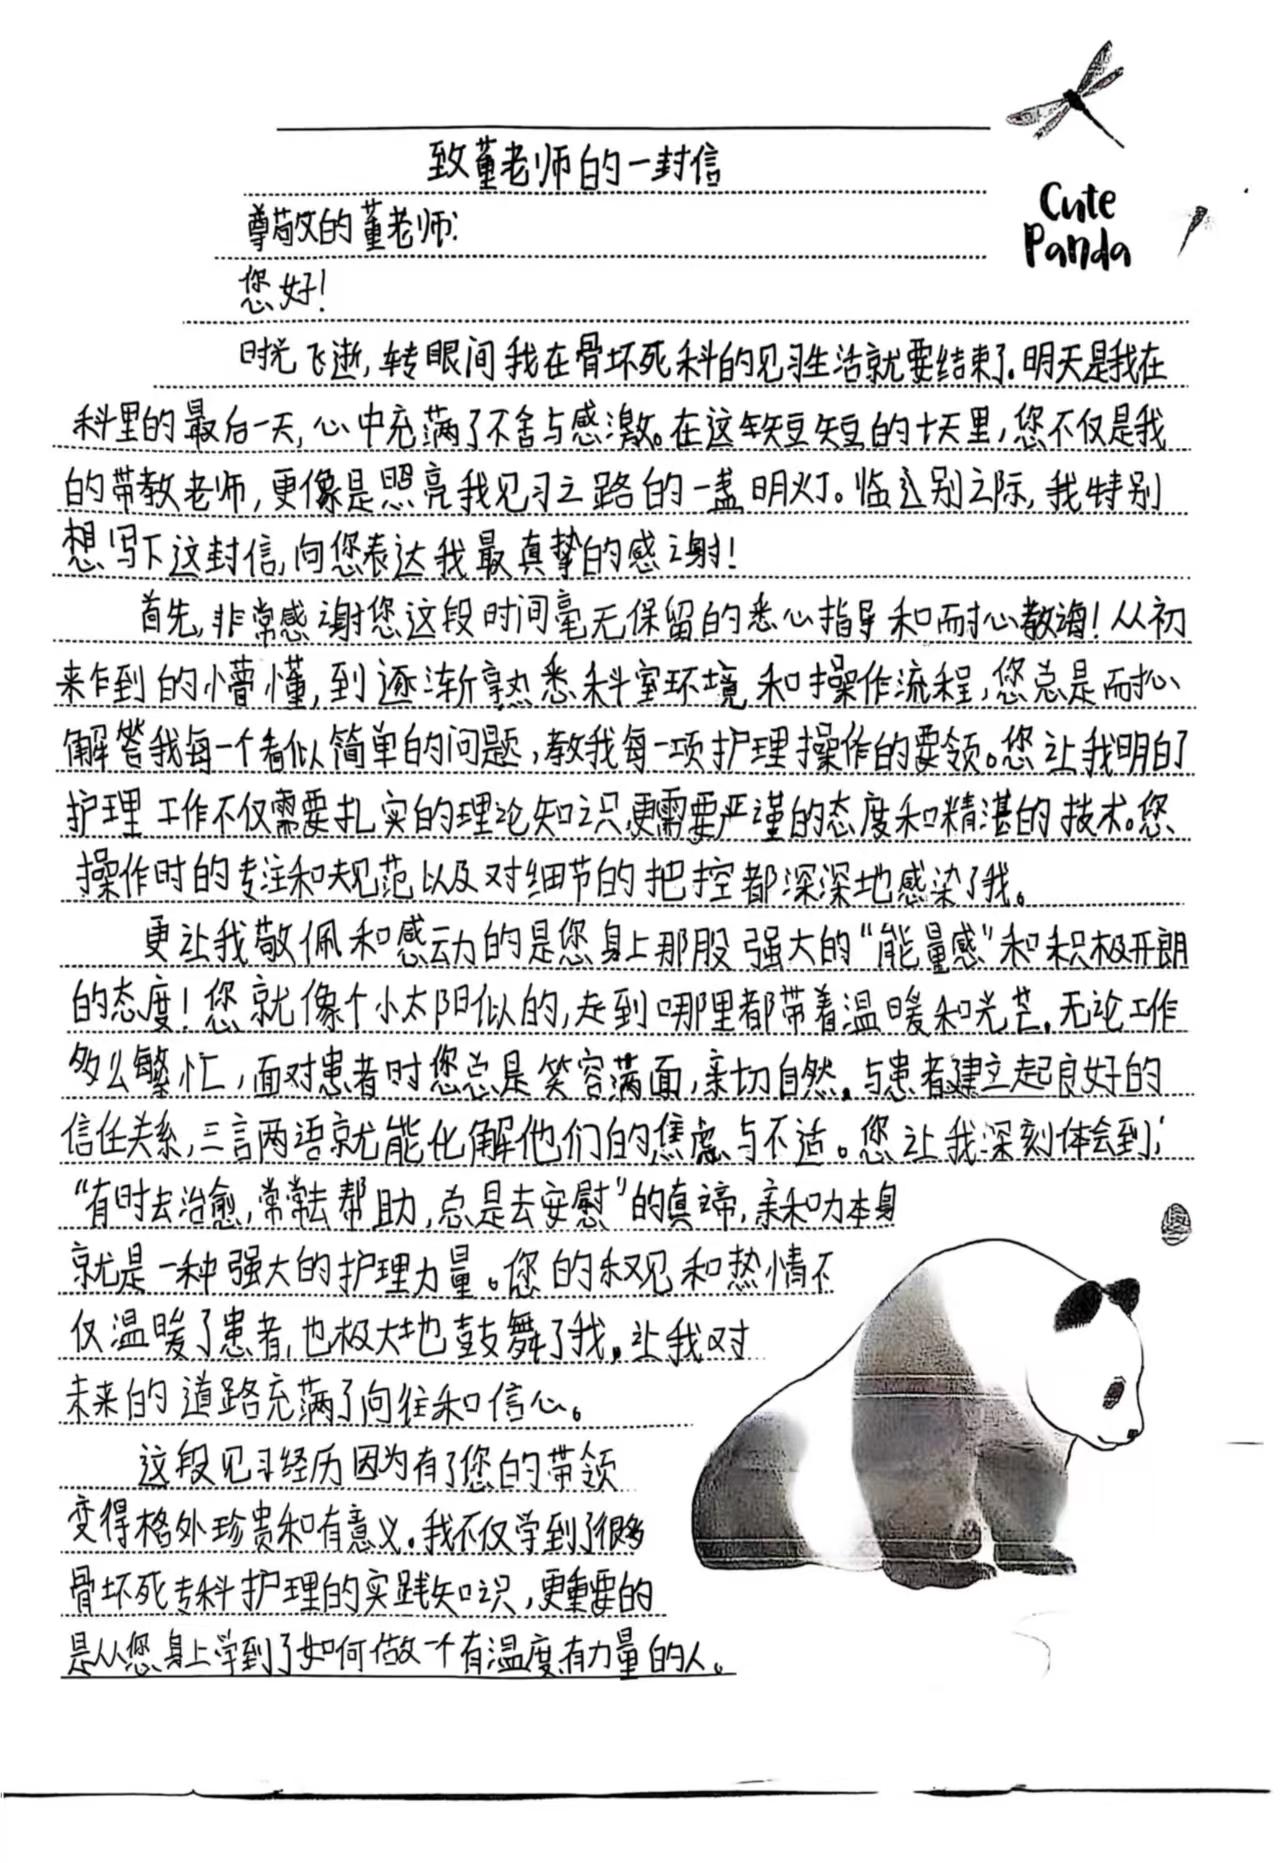 致董老师的一封信
Cute
Panda
尊敬的董老师:
您好!
时光飞逝,转眼间我在骨坏死科的见习生活就要结束了.明天是我在
科里的最后一天,心中充满了不舍与感激。在这短短的十天里,您不仅是我
的带教老师,更像是照亮我见习之路的一盏明灯。临别之际,我特别
想写下这封信,向您表达我最真挚的感谢!
首先,非常感谢您这段时间毫无保留的悉心指导和耐心教诲!从初
来乍到的懵懂,到逐渐熟悉科室环境和操作流程,您总是耐心
解答我每一个看似简单的问题,教我每一项护理操作的要领。您让我明白了
护理工作不仅需要扎实的理论知识更需要严谨的态度和精湛的技术。您
操作时的专注和规范以及对细节的把控都深深地感染了我。
更让我敬佩和感动的是您身上那股强大的“能量感”和积极开朗
的态度!您就像个小太阳似的,走到哪里都带着温暖和光芒.无论工作
多么繁忙,面对患者时您总是笑容满面,亲切自然.与患者建立起良好的
信任关系,三言两语就能化解他们的焦虑与不适。您让我深刻体会到:
“有时去治愈,常常去帮助,总是去安慰”的真谛,亲和力本身
就是一种强大的护理力量。您的和热情不
仅温暖了患者,也极大地鼓舞了我.让我对
未来的道路充满了向往和信心。
这段见习经历因为有了您的带领
变得格外珍贵和有意义.我不仅学到了很多
骨坏死专科护理的实践知识,更重要的
是从您身上学到了如何做一个有温度有力量的人。